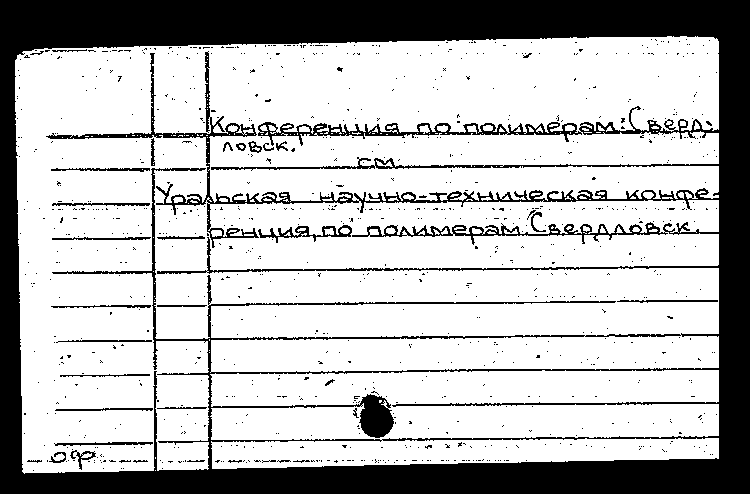 Конференция по полимерам: Сверд-
ловск.
см.
Уральская научно-техническая конфе-
ренция, по полимерам. Свердловск.
оф